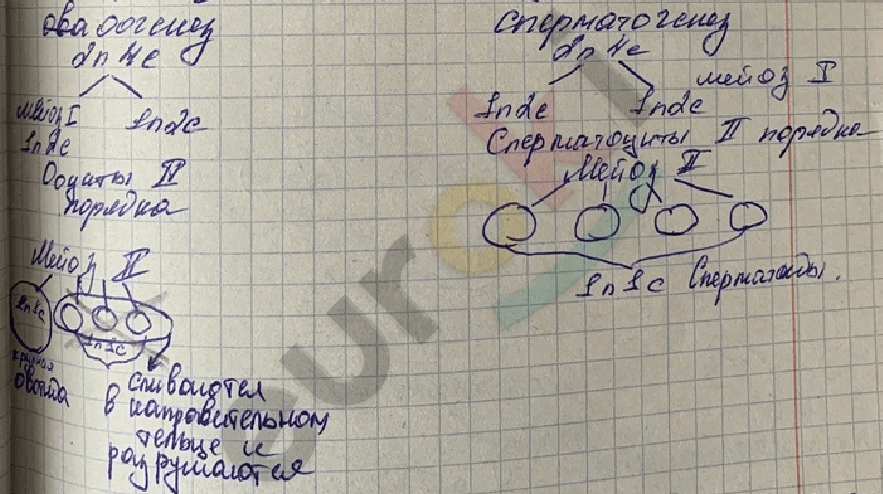 овадогенез
2n4c
мейоз I
1n2c
1n2c
Ооциты II
порядка
Мейоз II
1n1c
1n1c
крупная
овоида
сливаются
в направительном
тельце и
разрушаются
Сперматогенез
2n4c
мейоз I
1n2c 1n2c
Сперматоциты II порядка
Мейоз II
1n1c Сперматиды.
euroki